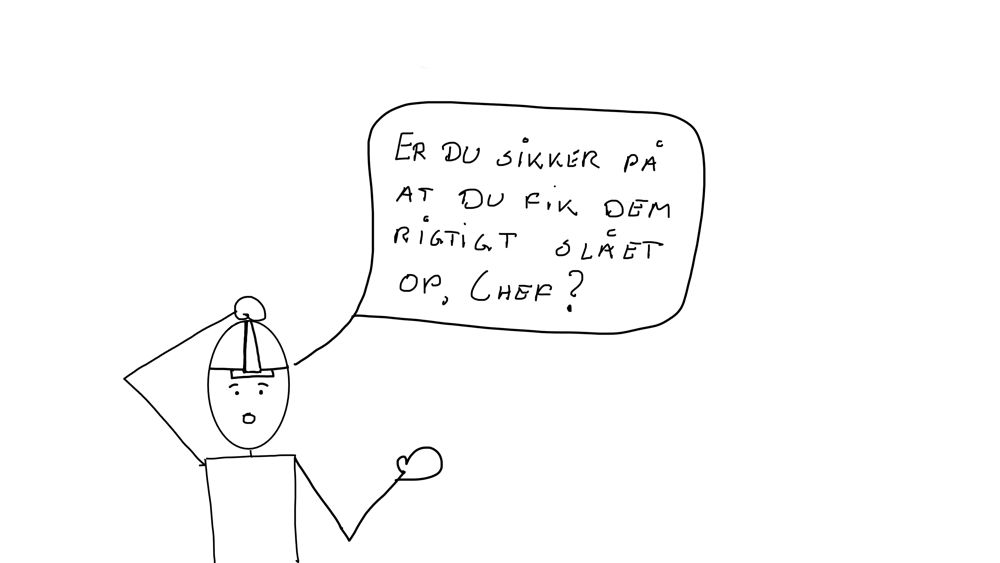 ER DU SIKKER PÅ
AT DU FIK DEM
RIGTIGT SLÅET
OP, CHEF?